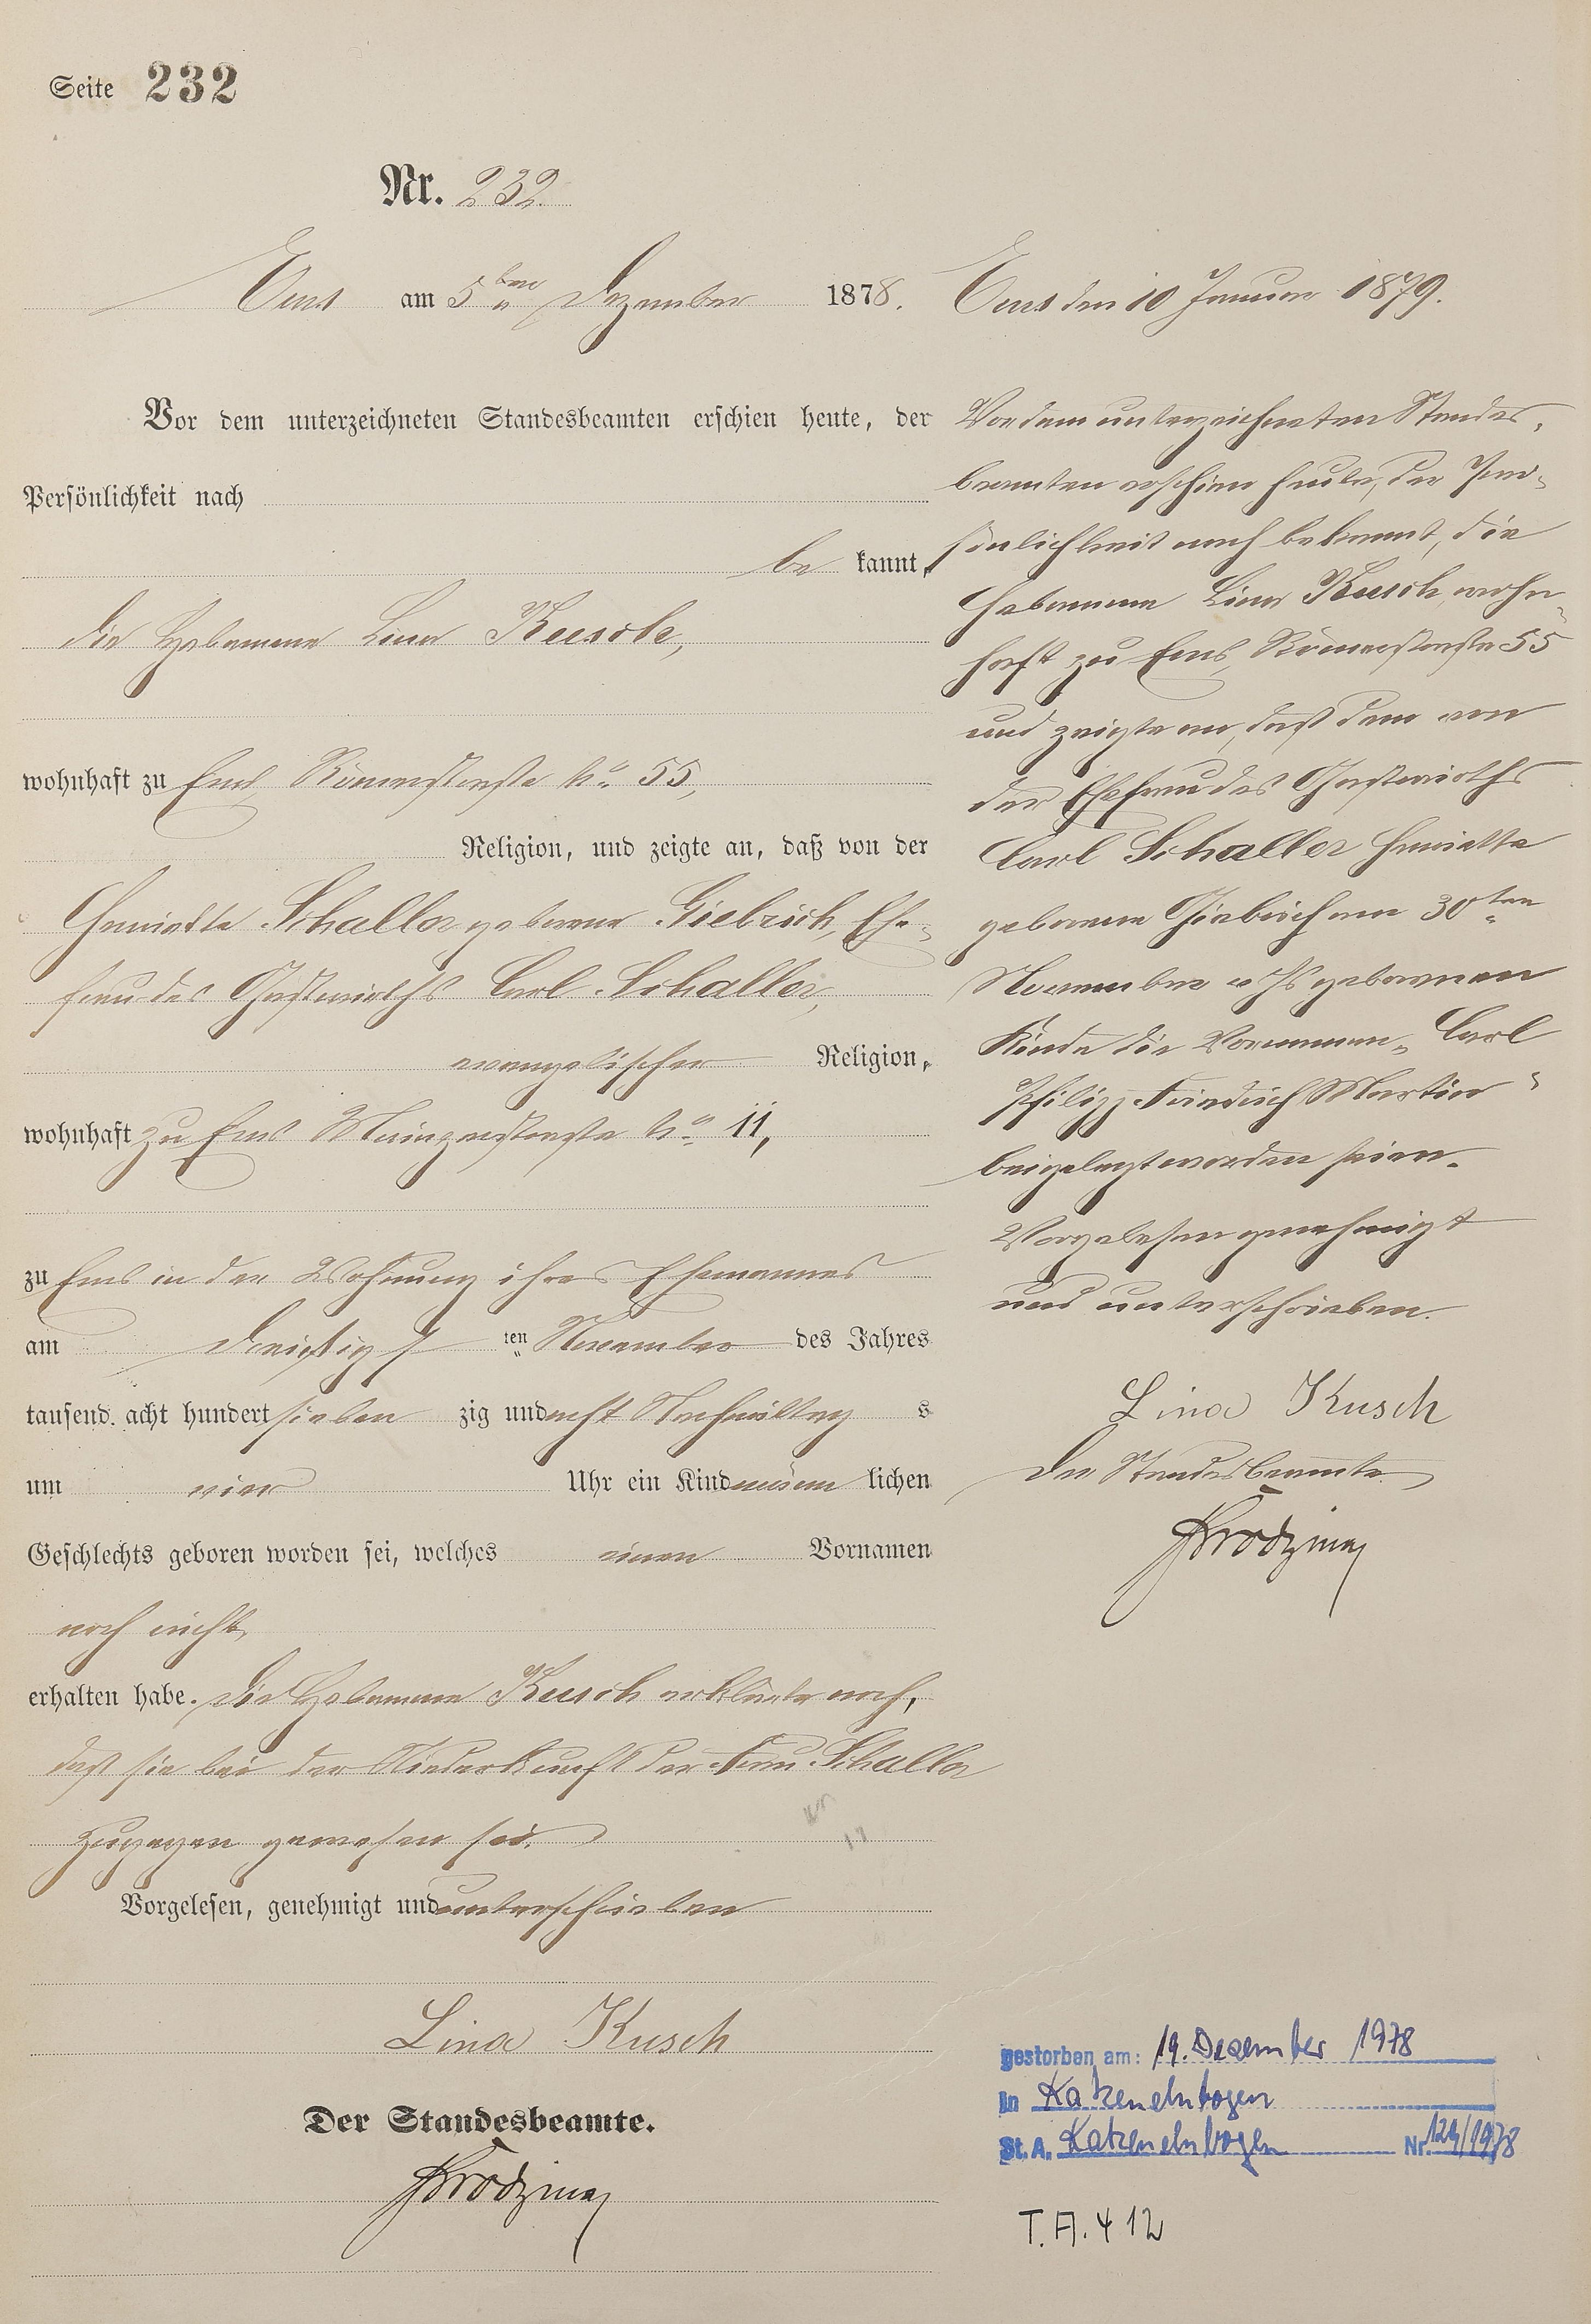 Seite 232
Nr. 232.
Ems am 5ten Dezember 1878.
Vor dem unterzeichneten Standesbeamten erschien heute, der
Persönlichkeit nach
be kannt,
die Hebamme Lina Kusch,
wohnhaft zu Ems, Römerstraße No 55,
Religion, und zeigte an, daß von der
Henriette Schaller geborene Giebisch, Ehe-
frau des Gastwirths Carl Schaller,
evangelischer Religion,
wohnhaft zu Ems Mainzerstraße No 11,
zu Ems in der Wohnung ihres Ehemannes
am dreißigsten November des Jahres
tausend acht hundert sieben zig und acht Nachmittag s
um vier Uhr ein Kind männ lichen
Geschlechts geboren worden sei, welches einen Vornamen
noch nicht
erhalten habe. Die Hebamme Kusch erklärte noch,
daß sie bei der Niederkunft der Frau Schaller
zugegen gewesen sei.
Vorgelesen, genehmigt und unterschrieben
Lina Kusch
Der Standesbeamte.
Ems den 10 Januar 1879.
Vor dem unterzeichneten Standes-
beamten erschien heute, der Per-
sönlichkeit nach bekannt, die
Hebamme Lina Kusch, wohn-
haft zu Ems, Römerstraße 55
und zeigte an, daß dem von
der Ehefrau des Gastwirths
Carl Schaller Henriette
geborene Giebisch am 30ten
November v Js geborenen
Kinde die Vornamen „Carl
Philipp Friedrich Martin“
beigelegt worden seien.
Vorgelesen genehmigt
und unterschrieben.
Lina Kusch
Der Standesbeamte
gestorben am: 19. Dezember 1978
in Katzenelnbogen
St. A. Katzenelnbogen Nr. 124/1978
T. A. 412